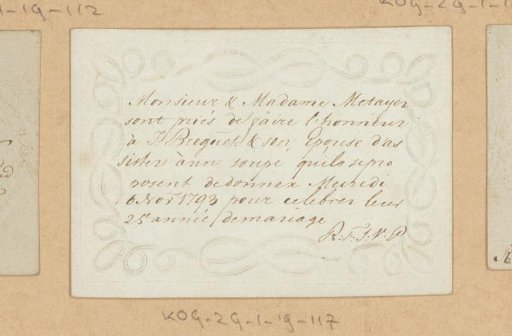 1-19-112
KOG-2G-1-1
Monsieur & Madame Metayer
sont priés de faire l'honneur
à Breguet & son Epouse d'as
sister à un soupé qu'ils se pro
posent de donner Mecredi
6 Nov 1793 pour celebrer leur
25e année de mariage
R.S.V.P
KOG-2G-1-19-117